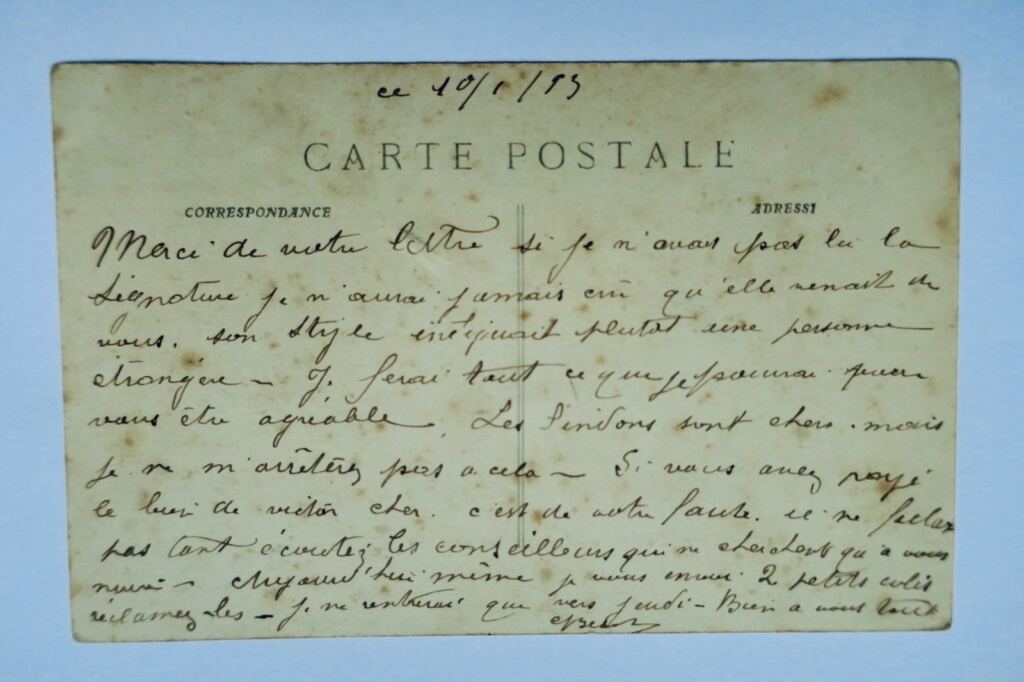 ce 10/1/13
CARTE POSTALE
CORRESPONDANCE ADRESSE
Merci de votre lettre si je n'avais pas lu la
signature je n'aurai jamais crû qu'elle venait de
vous. son style indiquait plutôt une personne
étrangère – Je ferai tout ce que je pourrai pour
vous être agréable. Les sont chers. mais
je ne m'arrêterez pas a cela – Si vous avez payé
le de victor cher. c'est de votre faute. il ne fallait
pas tant écoutez les conseilleurs qui ne cherchent qu'a vous
nuire – Aujourd'hui même je vous envoi 2 petits colis
réclamez les – Je ne rentrerai que vers jeudi – Bien a vous tout